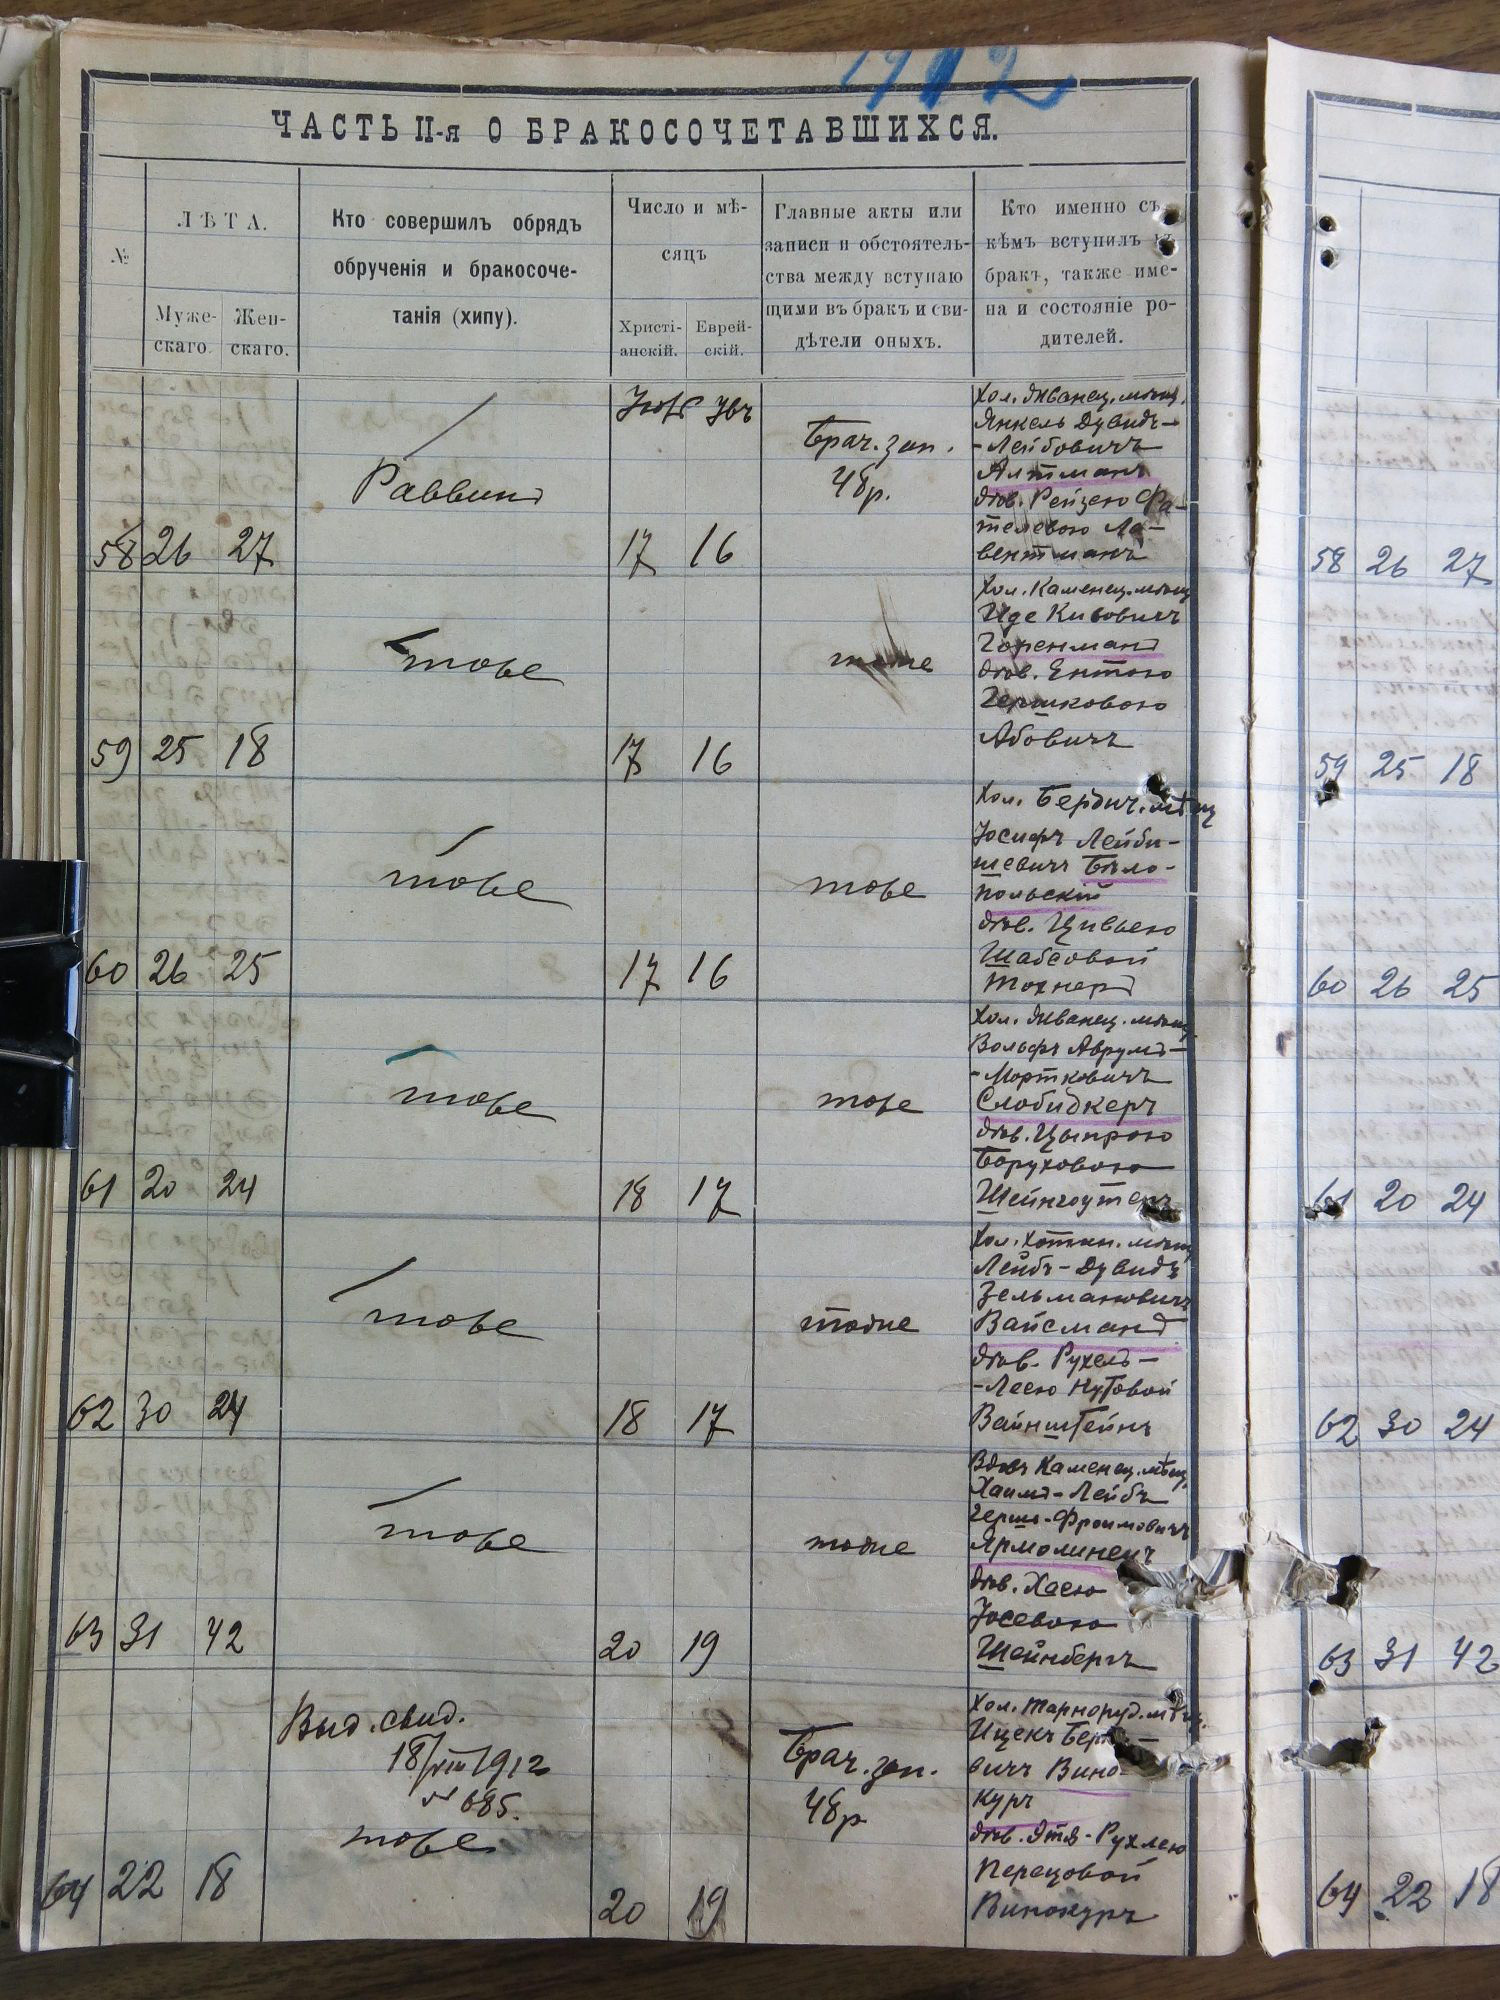 1912
ЧАСТЬ II-я О БРАКОСОЧЕТАВШИХСЯ.
№
ЛѢТА.
Муже-
скаго.
Жен-
скаго.
Кто совершилъ обрядъ
обрученія и бракосоче-
танія (хипу).
Число и мѣ-
сяцъ
Христі-
анскій.
Еврей-
скій.
Главные акты или
записи и обстоятель-
ства между вступаю
щими въ бракъ и сви-
дѣтели оныхъ.
Кто именно съ
кѣмъ вступилъ
бракъ, также име-
на и состояніе ро-
дителей.
58 26 27
Раввинъ
17 16
Брач. зап.
48 р.
Хол. Жванец. мѣщ.
Янкель Дувидъ-
-Лейбовичъ
Алтманъ
дѣв. Рейзею Фа-
телевою Ла-
вентманъ
59 25 18
тоже
17 16
тоже
Хол. Каменец. мѣщ
Иде Кивовичъ
Горенманъ
дѣв. Ентою
Гершковою
Абовичъ
60 26 25
тоже
17 16
тоже
Хол. Бердич. мѣщ
Іосифъ Лейби-
шевичъ Бѣло-
польскій
дѣв. Цивьею
Шабсовой
Токнеръ
61 20 24
тоже
18 17
тоже
Хол. Жванец. мѣщ
Вольфъ Аврумъ-
-Мортковичъ
Слободкеръ
дѣв. Цыпрою
Боруховою
Шейнгоутеръ
62 30 24
тоже
18 17
тоже
Хол. Хотин. мѣщ
Лейбъ-Дувидъ
Зельмановичъ
Вайсманъ
дѣв. Рухель-
-Леею Нутовой
Вайнштейнъ
63 31 42
тоже
20 19
тоже
Вдов. Каменец. мѣщ.
Хаимъ-Лейбъ
Герш-Фроимовичъ
Ярмолинецъ
дѣв. Хаею
Іосевою
Шейнбергъ
64 22 18
Выд. свид.
18/VIII 1912
№ 685.
тоже
20 19
Брач. зап.
48 р
Хол. Тарноруд. мѣщ.
Ицекъ Берко-
вичъ Вино-
куръ
дѣв. Этя-Рухлею
Перецовой
Винокуръ
58 26 27
59 25 18
60 26 25
61 20 24
62 30 24
63 31 42
64 22 18